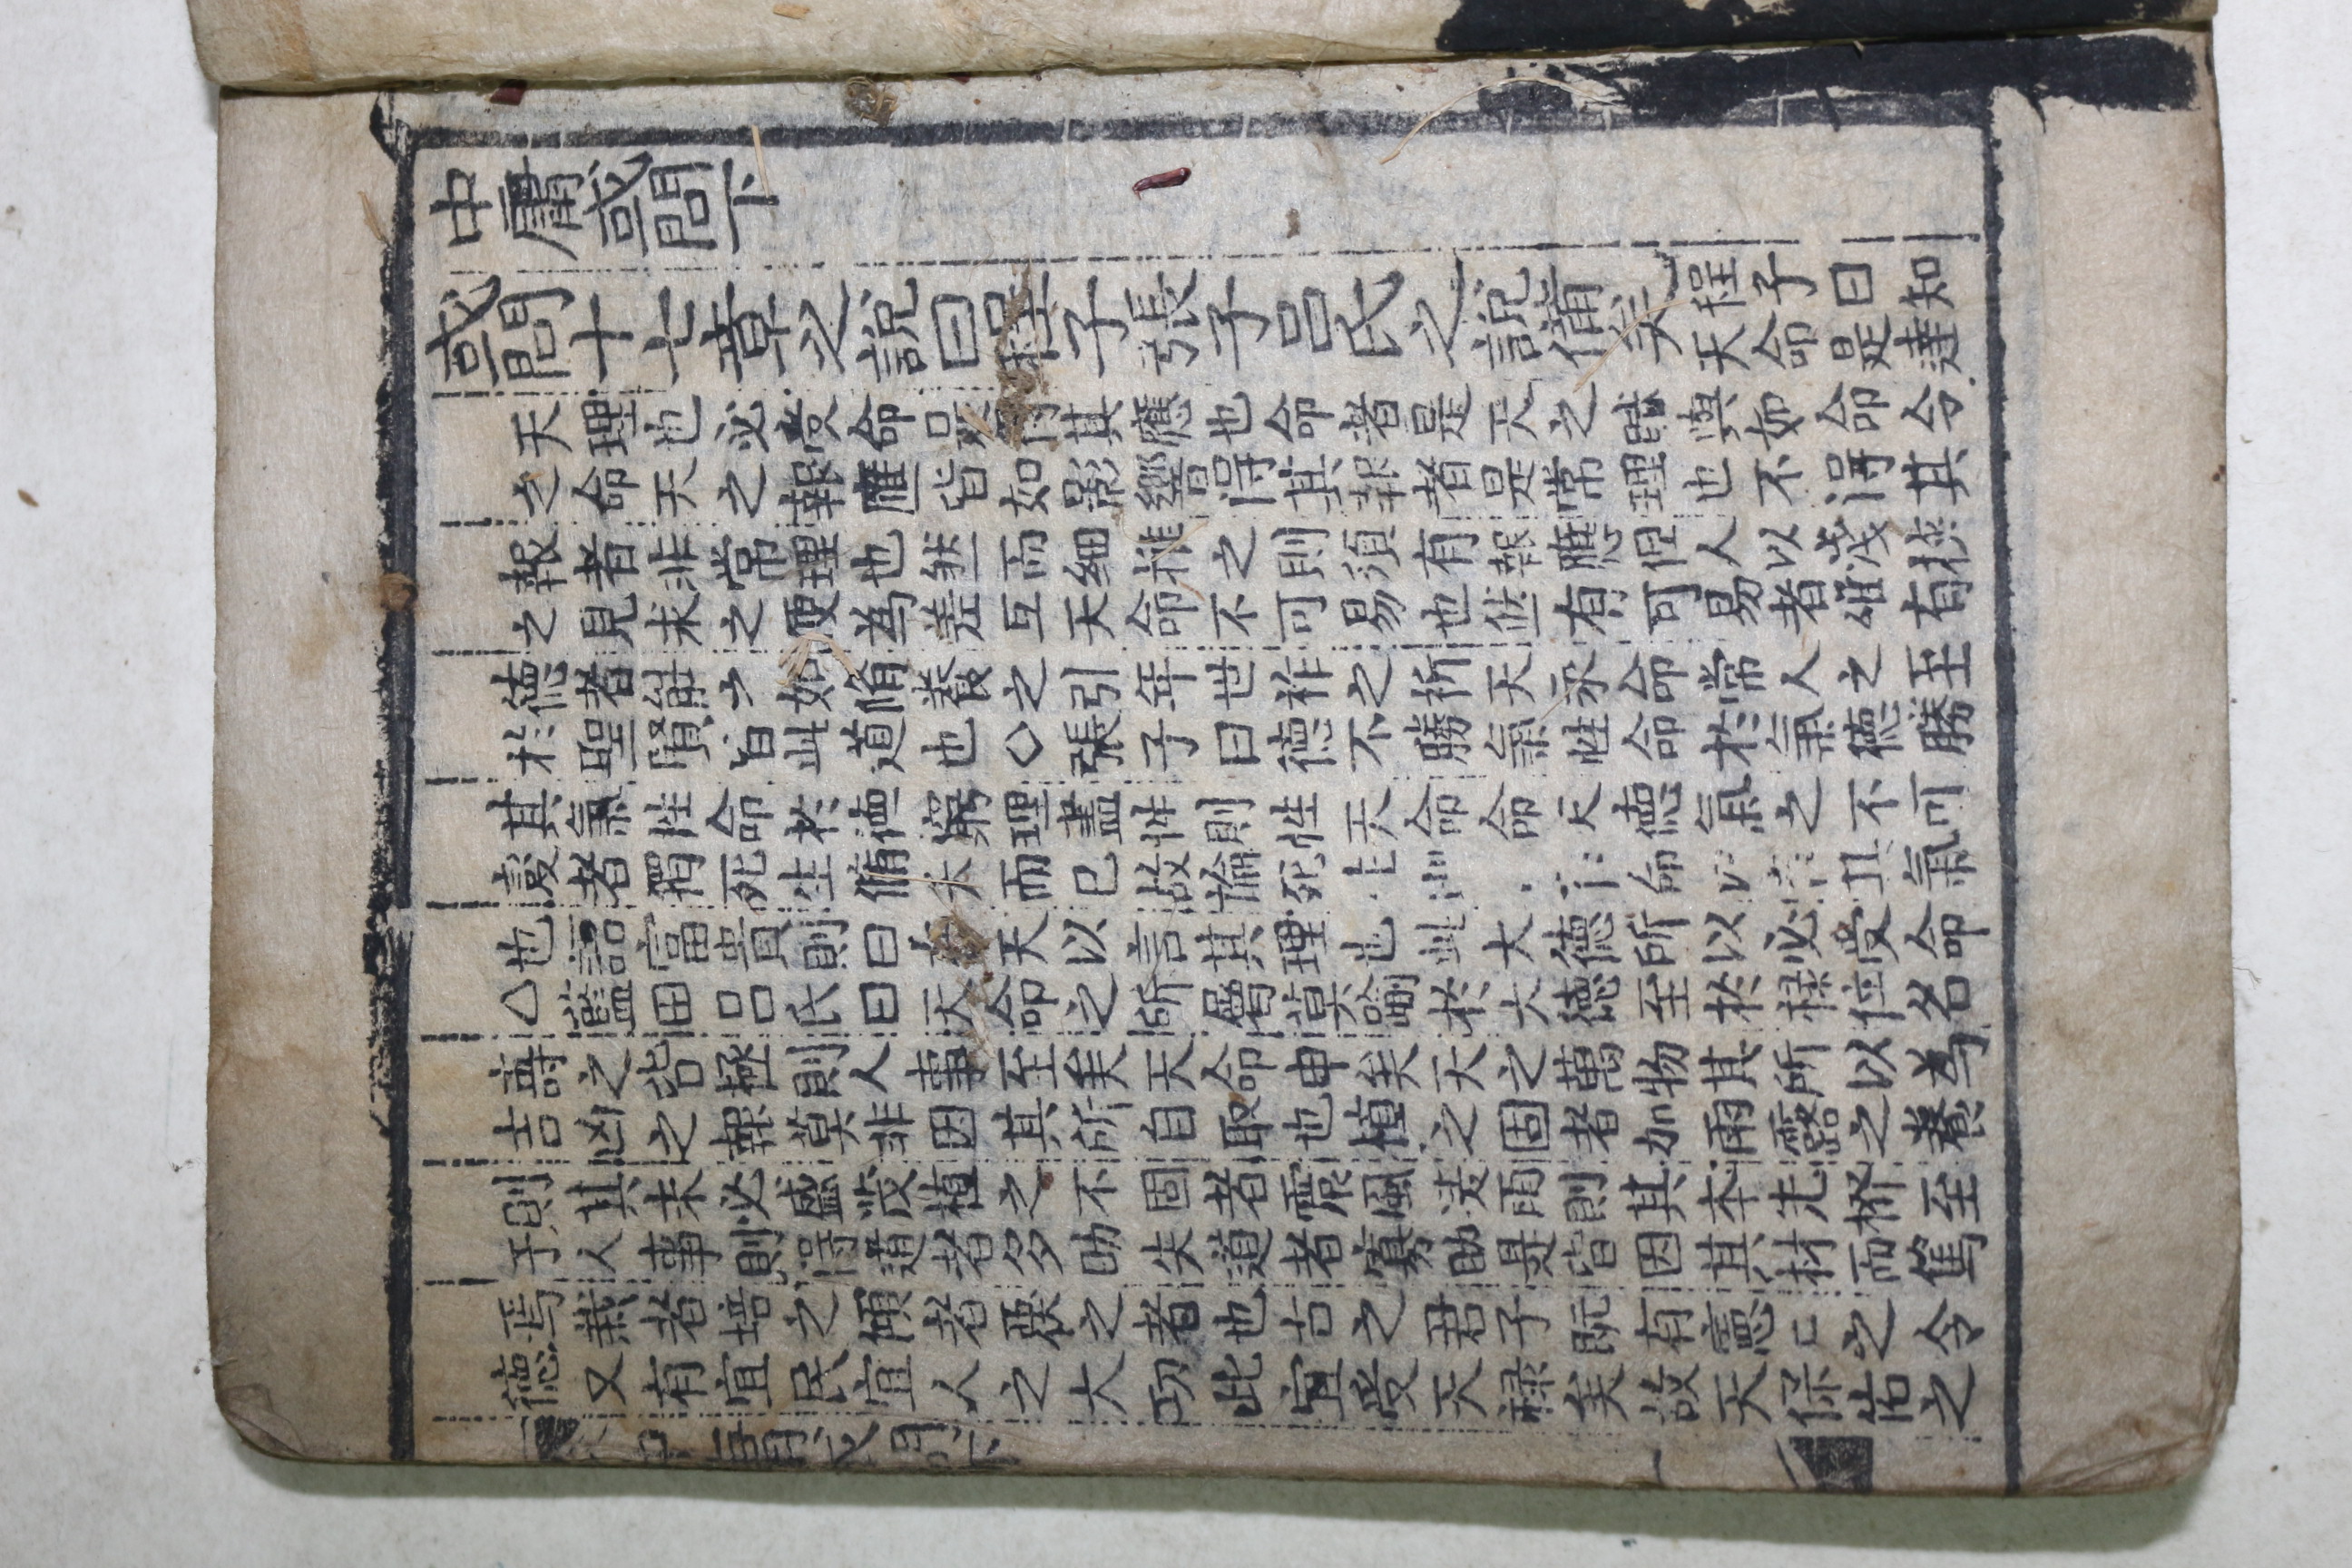 中庸或問下
或問十七章之說曰程子張子呂氏之說備矣程子曰知
天命是達
天理也必受命是得其應也命者是天之賦與如命令
之命天之報應皆如影響得其報者是常理也不得其
報者非常理也然而細推之則須有報應但人以淺狹
之見求之便為差互天命不可易也然有可易者唯有
德者能之如脩養之引年世祚之祈天永命常人之至
於聖賢皆此道也○張子曰德不勝氣性命於氣德勝
其氣性命於德窮理盡性則性天命命天德氣之不可
變者獨死生脩夭而已故論死生則曰有命以言其氣
也語富貴則曰在天以言其理也此大德所以必受命
△藍田呂氏曰天命之所屬莫踰於大德至於祿位名
壽之皆極則人事至矣天命申矣天之萬物其所以為
吉凶之報莫非因其所自取也植之固者加雨露之養
則其末必盛茂植之不固者震風凌雨則其本先撥至
于人事則得道者多助失道者寡助是皆因其材而篤
焉栽者培之傾者覆之者也古之君子既有憲憲之令
德又有宜民宜人之大功此宜受天祿矣故天保佑之
中庸或問下